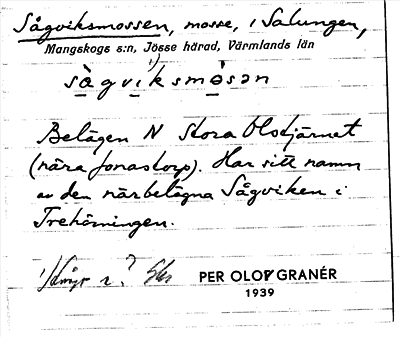 Sågviksmossen, mosse, i Salungen,
Mangskogs s:n, Jösse härad, Värmlands län
1)
sàgviksmòsən
Belägen N Stora Olstjärnet
(nära Jonastorp). Har sitt namn
av den närbelägna Sågviken i
Trehörningen.
1) långt ?
PER OLOF GRANÉR
1939